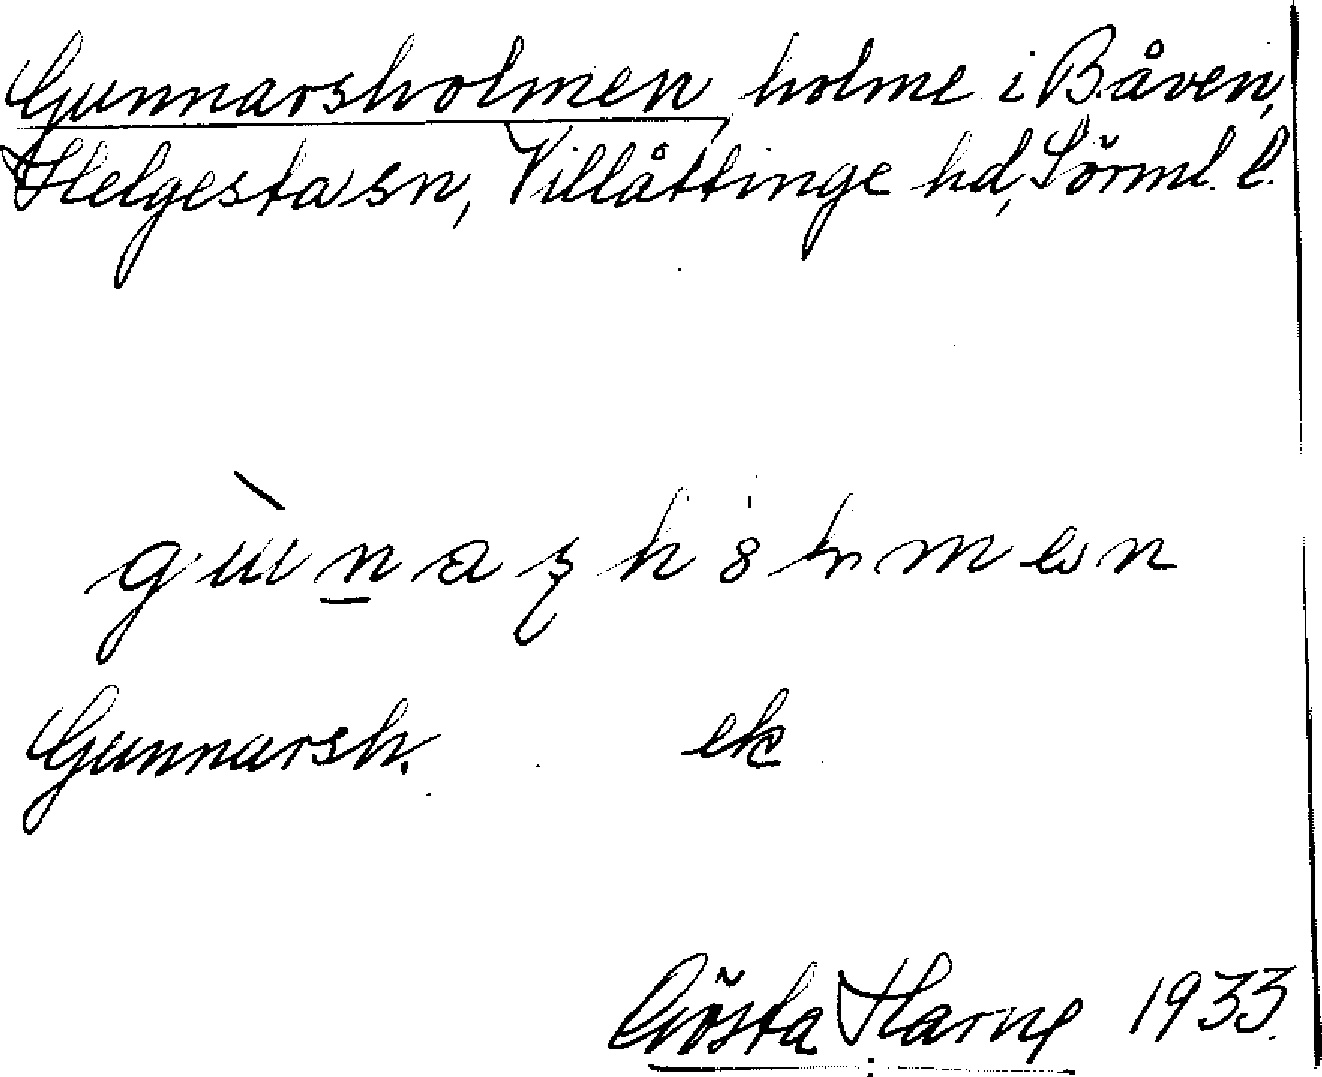 Gunnarsholmen, holme i Båven,
Helgesta sn, Villåttinge hd, Sörml. l.
Gunnarsh. ek
Gösta Harne 1933.